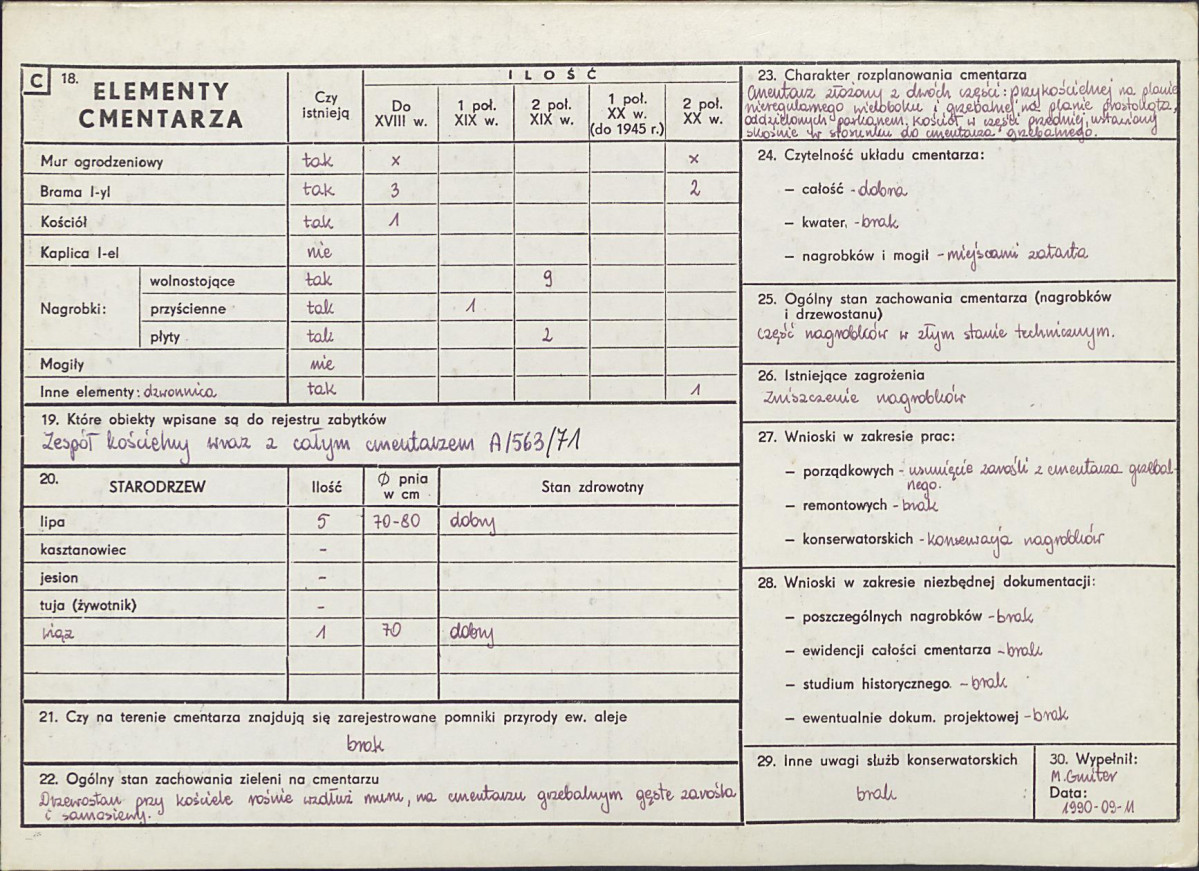 C 18. ELEMENTY CMENTARZA
Czy istnieją
ILOŚĆ
Do XVIII w.
1 poł. XIX w.
2 poł. XIX w.
1 poł. XX w. (do 1945 r.)
2 poł. XX w.
Mur ogrodzeniowy tak x x
Brama I-yl tak 3 2
Kościół tak 1
Kaplica I-el nie
Nagrobki:
wolnostojące tak 9
przyścienne tak 1
płyty tak 2
Mogiły nie
Inne elementy: dzwonnica tak 1
19. Które obiekty wpisane są do rejestru zabytków
Zespół kościelny wraz z całym cmentarzem A/563/71
20. STARODRZEW Ilość Ø pnia w cm Stan zdrowotny
lipa 5 70-80 dobry
kasztanowiec -
jesion -
tuja (żywotnik) -
wiąz 1 70 dobry
21. Czy na terenie cmentarza znajdują się zarejestrowane pomniki przyrody ew. aleje
brak
22. Ogólny stan zachowania zieleni na cmentarzu
Drzewostan przy kościele rośnie wzdłuż muru, na cmentarzu grzebalnym gęste zarośla
i samosiewy.
23. Charakter rozplanowania cmentarza
Cmentarz złożony z dwóch części: przykościelnej na planie
nieregularnego wieloboku i grzebalnej na planie prostokąta,
oddzielonych parkanem, kościół w części przedniej, ustawiony
skośnie w stosunku do cmentarza grzebalnego.
24. Czytelność układu cmentarza:
— całość - dobra
— kwater, - brak
— nagrobków i mogił - miejscami zatarta
25. Ogólny stan zachowania cmentarza (nagrobków
i drzewostanu)
część nagrobków w złym stanie technicznym.
26. Istniejące zagrożenia
zniszczenie nagrobków
27. Wnioski w zakresie prac:
— porządkowych - usunięcie zarośli z cmentarza grzebal-
nego.
— remontowych - brak
— konserwatorskich - konserwacja nagrobków
28. Wnioski w zakresie niezbędnej dokumentacji:
— poszczególnych nagrobków - brak
— ewidencji całości cmentarza - brak
— studium historycznego - brak
— ewentualnie dokum. projektowej - brak
29. Inne uwagi służb konserwatorskich
brak
30. Wypełnił:
M. Gmiter
Data:
1990-09-11